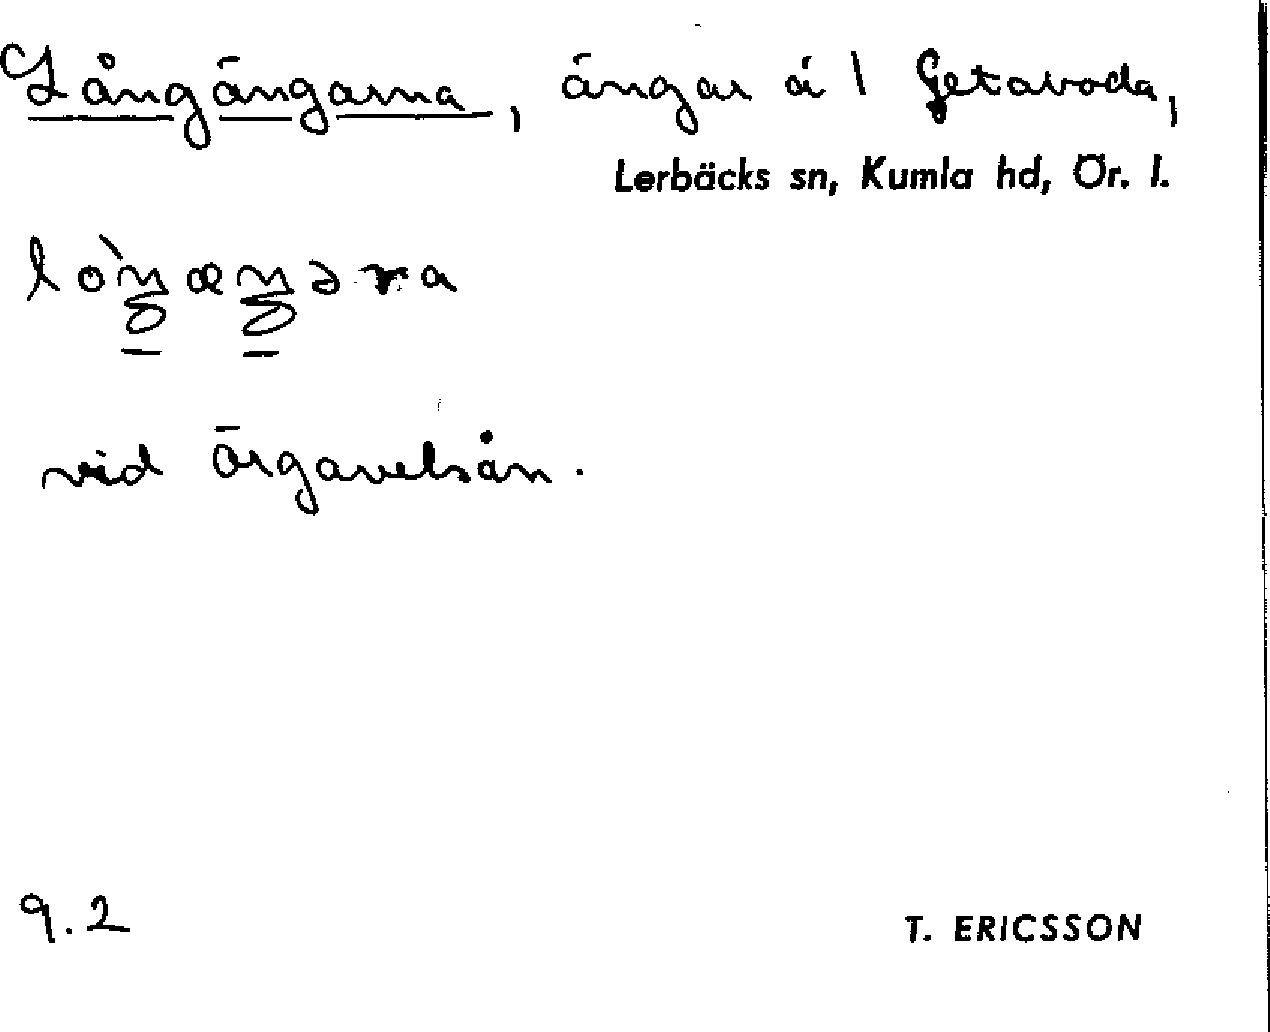 Långängarna, ängar å 1 Getaboda,
Lerbäcks sn, Kumla hd, Ör. l.
vid Örgavelsån.
9.2
T. ERICSSON